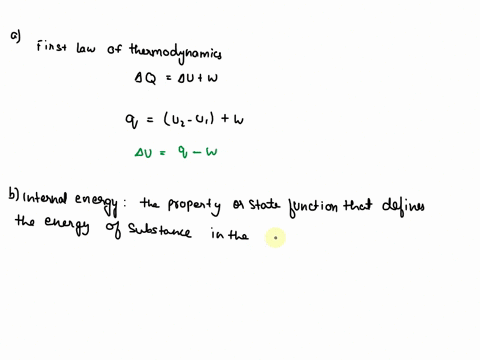 a) First law of thermodynamics
ΔQ = ΔU + W
q = (U₂ - U₁) + W
ΔU = q - W
b) Internal energy: the property or state function that defines
the energy of substance in the